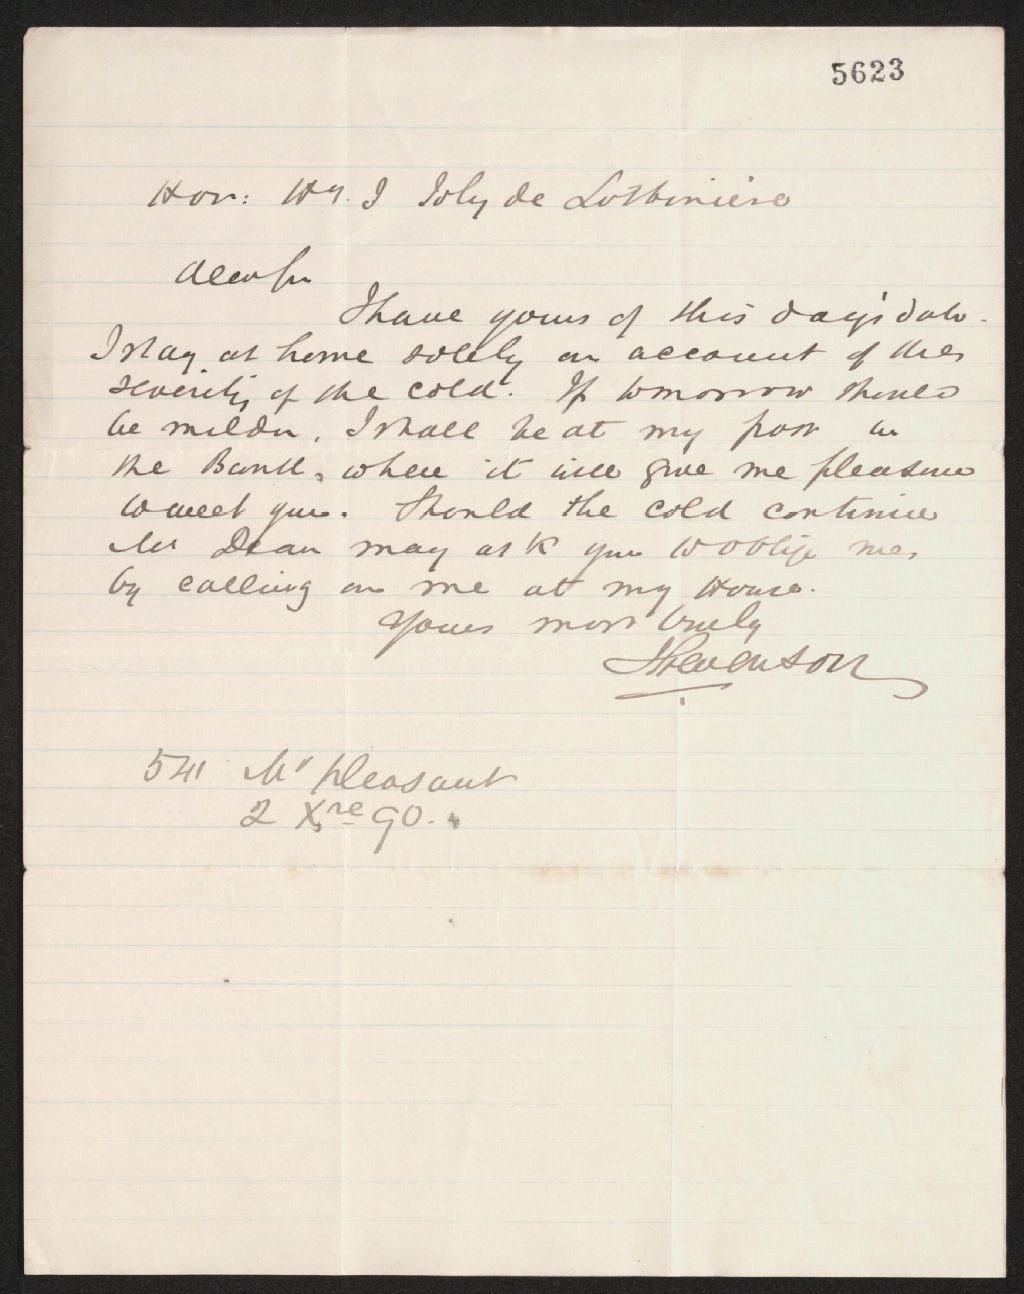 5623
Hon: Hy. I Joly de Lotbinière
Dear Sir
I have yours of this day's date.
I stay at home solely on account of the
severity of the cold. If tomorrow should
be milder, I shall be at my post in
the Bank, where it will give me pleasure
to meet you. Should the cold continue
Mr Dean may ask you to oblige me,
by calling on me at my House.
Yours most truly
Stevenson
541 Mt Pleasant
2 Xre 90.